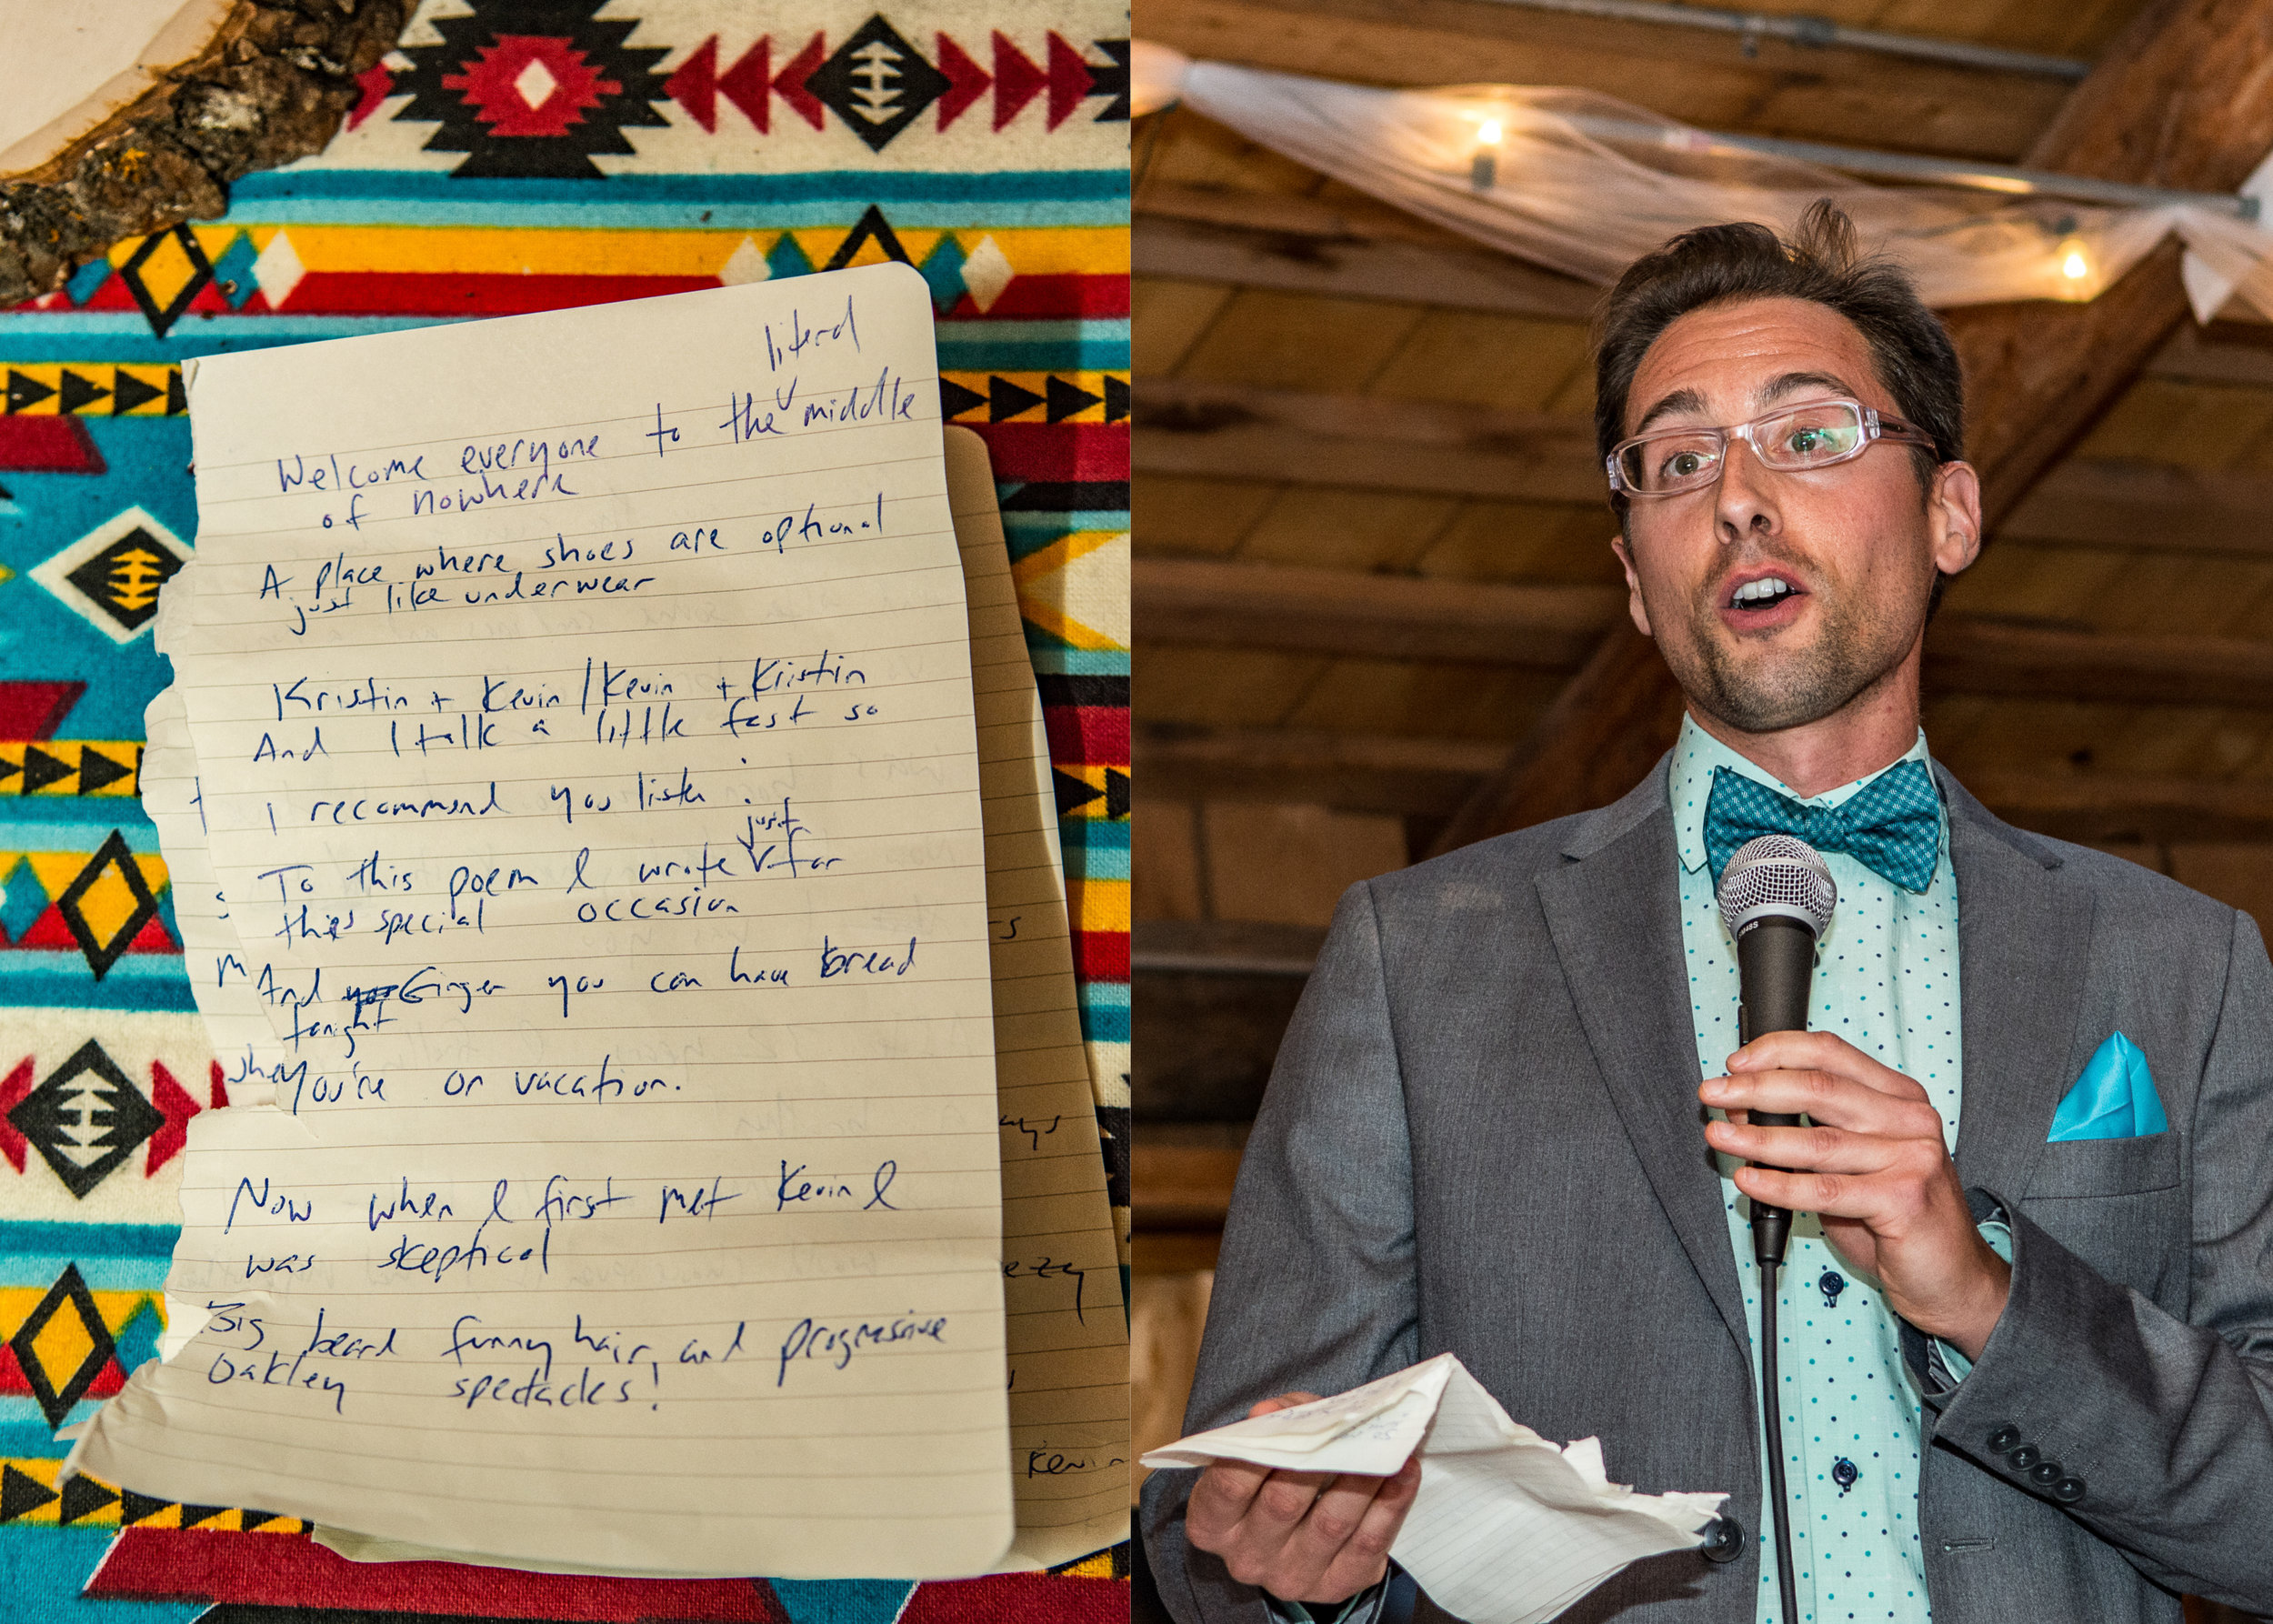 literal
Welcome everyone to the middle
of nowhere
A place where shoes are optional
just like underwear
Kristin + Kevin / Kevin + Kristin
And I talk a little fast so
I recommend you listen
just
To this poem I wrote for
this special occasion
And Ginger you can have bread
tonight
You're on vacation.
Now when I first met Kevin I
was skeptical
Big beard funny hair, and progressive
Oakley spectacles!
ezy
Kevin